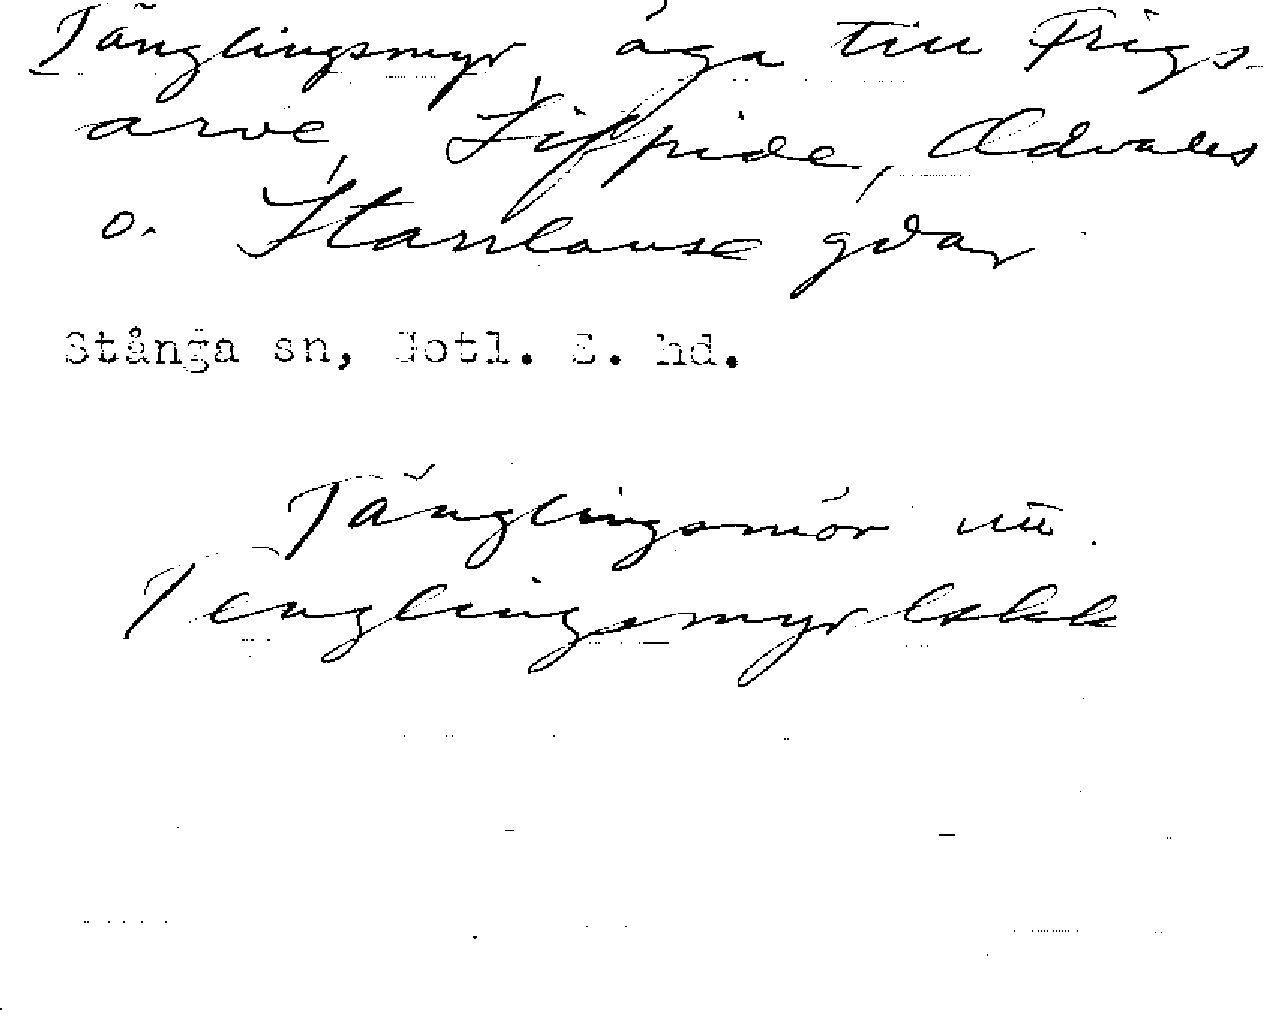 Tänglingsmyr, äga till Frigs-
arve, Liffride, Ædvales
o. Stanlause gdar
Stånga sn, Gotl. S. hd.
Tänglingsmör
Tenglingsmyr